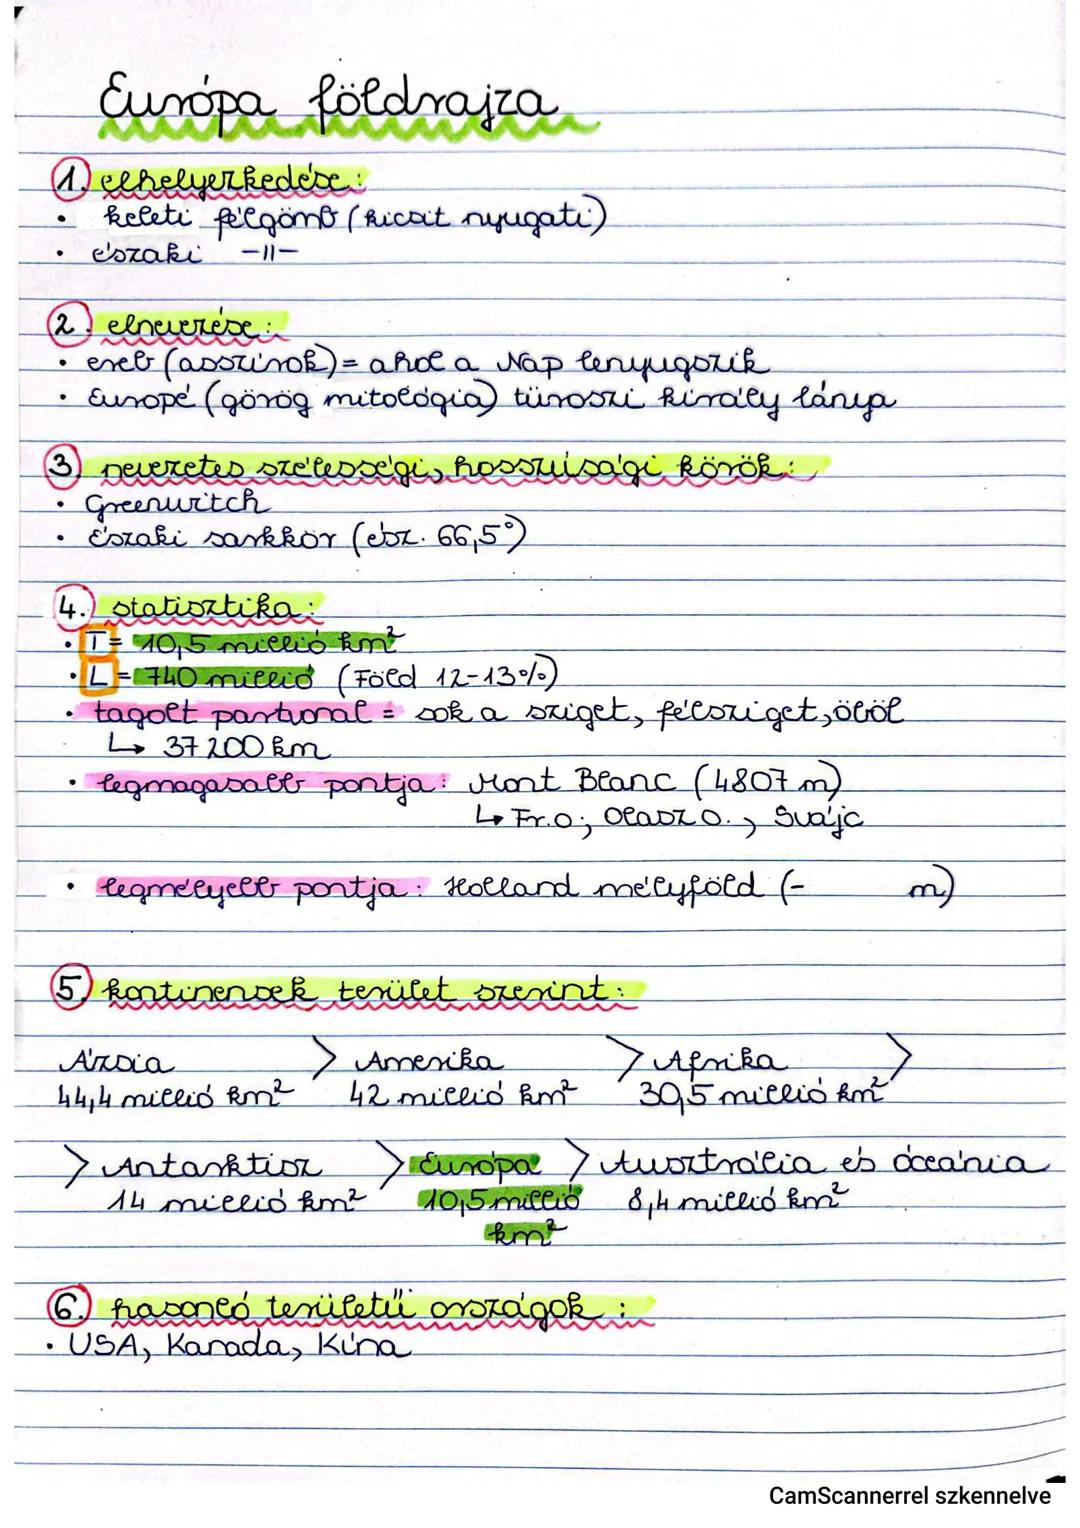 Európa földrajza
1. elhelyezkedése:
• keleti félgömb (kicsit nyugati)
• északi -11-
2. elnevezése:
• ereb (asszírok) = ahol a Nap lenyugszik
• Európé (görög mitológia) türoszi király lánya
3. nevezetes szélességi, hosszúsági körök:
• Greenwitch
• Északi sarkkör (ész. 66,5°)
4. statisztika:
• T = 10,5 millió km²
• L = 740 millió (Föld 12-13%)
• tagolt partvonal = sok a sziget, félsziget, öböl
↳ 37 200 km
• legmagasabb pontja: Mont Blanc (4807 m)
↳ Fr.o; Olasz o., Svájc
• legmélyebb pontja: Holland mélyföld (- m)
5. kontinensek terület szerint:
Ázsia > Amerika > Afrika >
44,4 millió km² 42 millió km² 30,5 millió km²
> Antarktisz > Európa > Ausztrália és óceánia
14 millió km² 10,5 millió 8,4 millió km²
km²
6. hasonló területű országok:
• USA, Kanada, Kína
CamScannerrel szkennelve